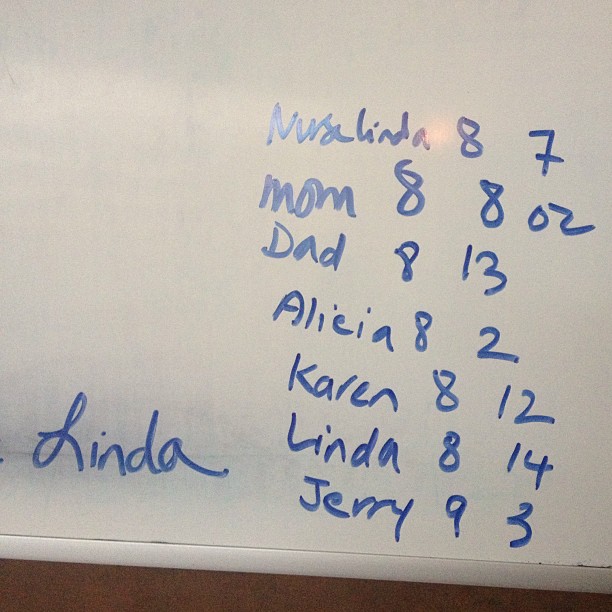 Nurse Linda 8 7
mom 8 8 oz
Dad 8 13
Alicia 8 2
Karen 8 12
Linda 8 14
Jerry 9 3
Linda